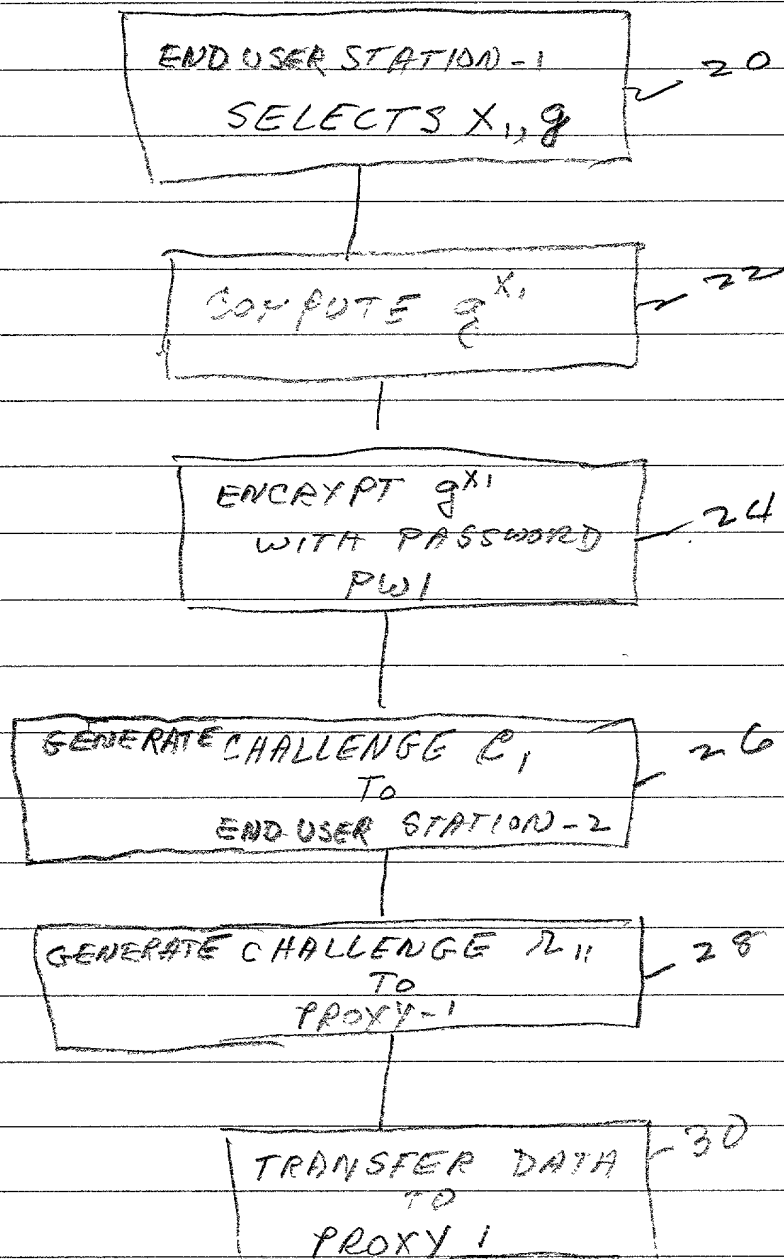 END USER STATION-1 20
SELECTS X₁, g
COMPUTE g^X₁ 22
ENCRYPT g^X₁ 24
WITH PASSWORD
PW1
GENERATE CHALLENGE C₁ 26
TO
END USER STATION-2
GENERATE CHALLENGE r₁₁ 28
TO
PROXY-1
TRANSFER DATA 30
TO
PROXY 1